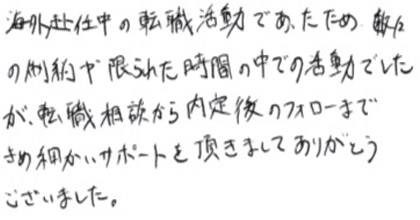 海外赴任中の転職活動であったため、数々
の制約や限られた時間の中での活動でした
が、転職相談から内定後のフォローまで
きめ細かいサポートを頂きましてありがとう
ございました。